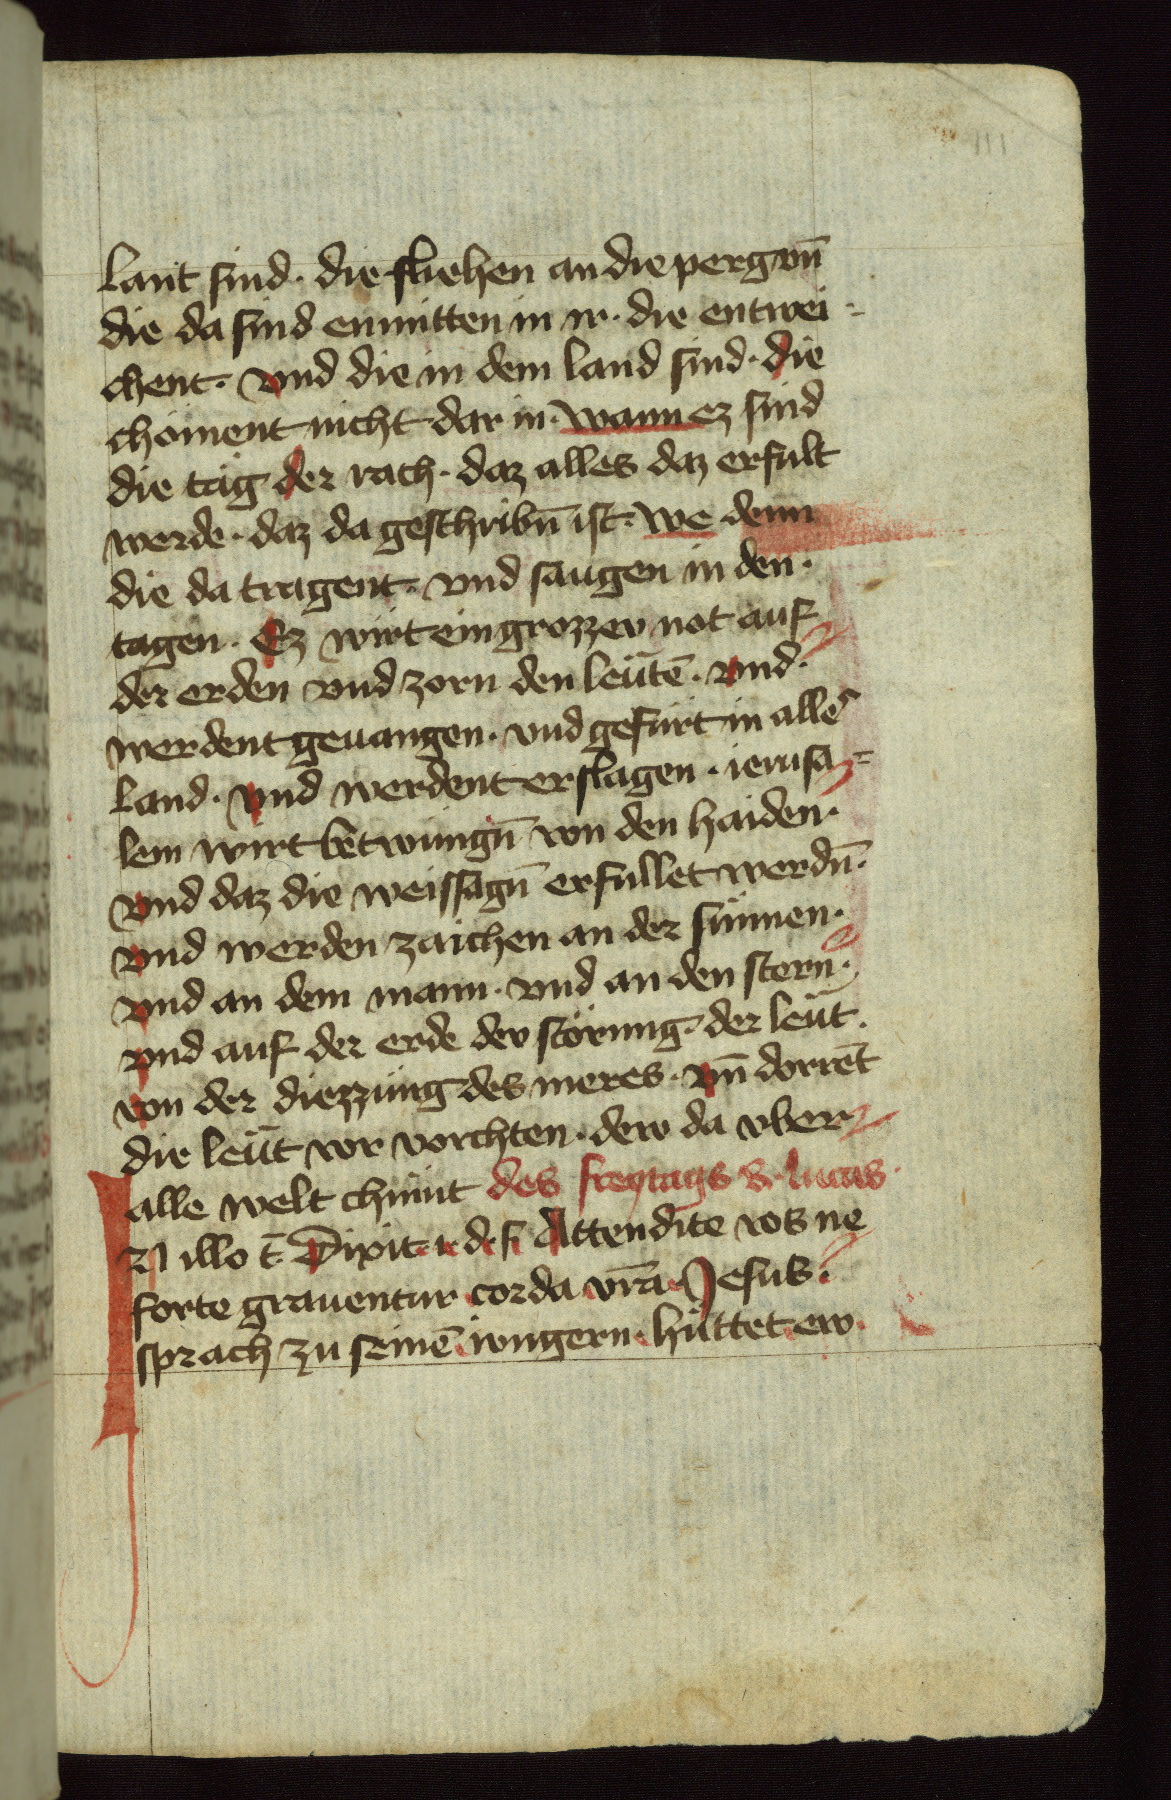 111
lant sind · die fliehen an die perg vn̄
die da sind enmitten in ir · die entwei=
chent · vnd die in dem land sind · die
choment nicht dar in · wann ez sind
die tag der rach · daz alles daz erfult
werde · daz da geschribn̄ ist · we denn
die da tragent · vnd saugen in den ·
tagen · Ez wirt ein grozzev not auf
der erden vnd zorn den leutē · vnd ·
werdent geuangen · vnd gefurt in alle
land · vnd werdent erslagen · ierusa=
lem wirt betwungn̄ von den haiden ·
vnd daz die weissagn̄ erfullet werdn̄ ·
vnd werden zaichen an der sunnen ·
vnd an dem mann · vnd an den stern̄ ·
vnd auf der erde dev störung · der leut ·
von der diezzung des meres · vn̄ dorrēt
die leut vor vorchten · dew da vber
alle welt chumt des freytags S · lucas ·
IN illo t̄ Dixit i · d · s · Attendite vos ne
forte grauentur corda vr̄a · Jesus ·
sprach zu seinē iungern · hüttet ew ·